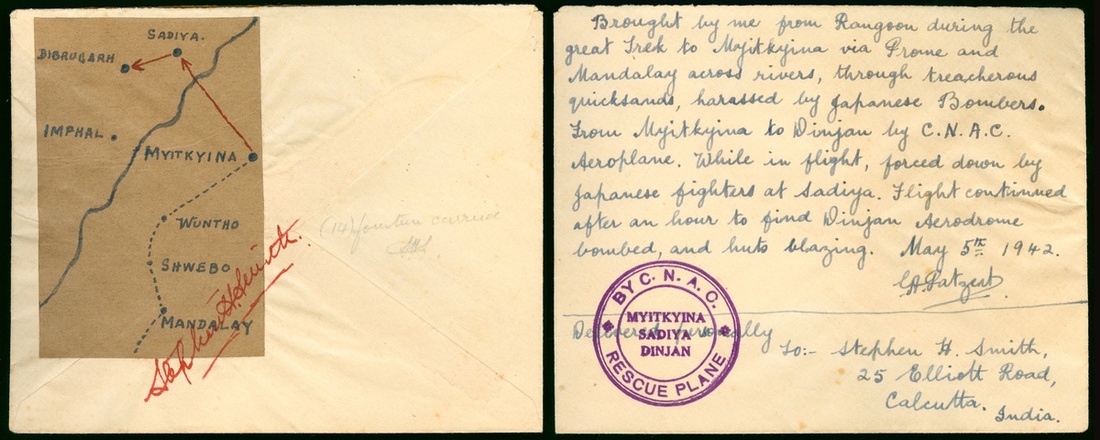 SADIYA.
DIBRUGARH
IMPHAL
MYITKYINA
WUNTHO
SHWEBO
MANDALAY
Stephen H. Smith.
(14) fourteen carried
SHS.
Brought by me from Rangoon during the
great Trek to Myitkyina via Prome and
Mandalay across rivers, through treacherous
quicksands, harassed by Japanese Bombers.
From Myitkyina to Dinjan by C.N.A.C.
Aeroplane. While in flight, forced down by
Japanese fighters at Sadiya. Flight continued
after an hour to find Dinjan Aerodrome
bombed, and huts blazing. May 5th 1942.
Delivered personally
BY C.N.A.C.
MYITKYINA
SADIYA
DINJAN
RESCUE PLANE
To:- Stephen H. Smith,
25 Elliott Road,
Calcutta.
India.